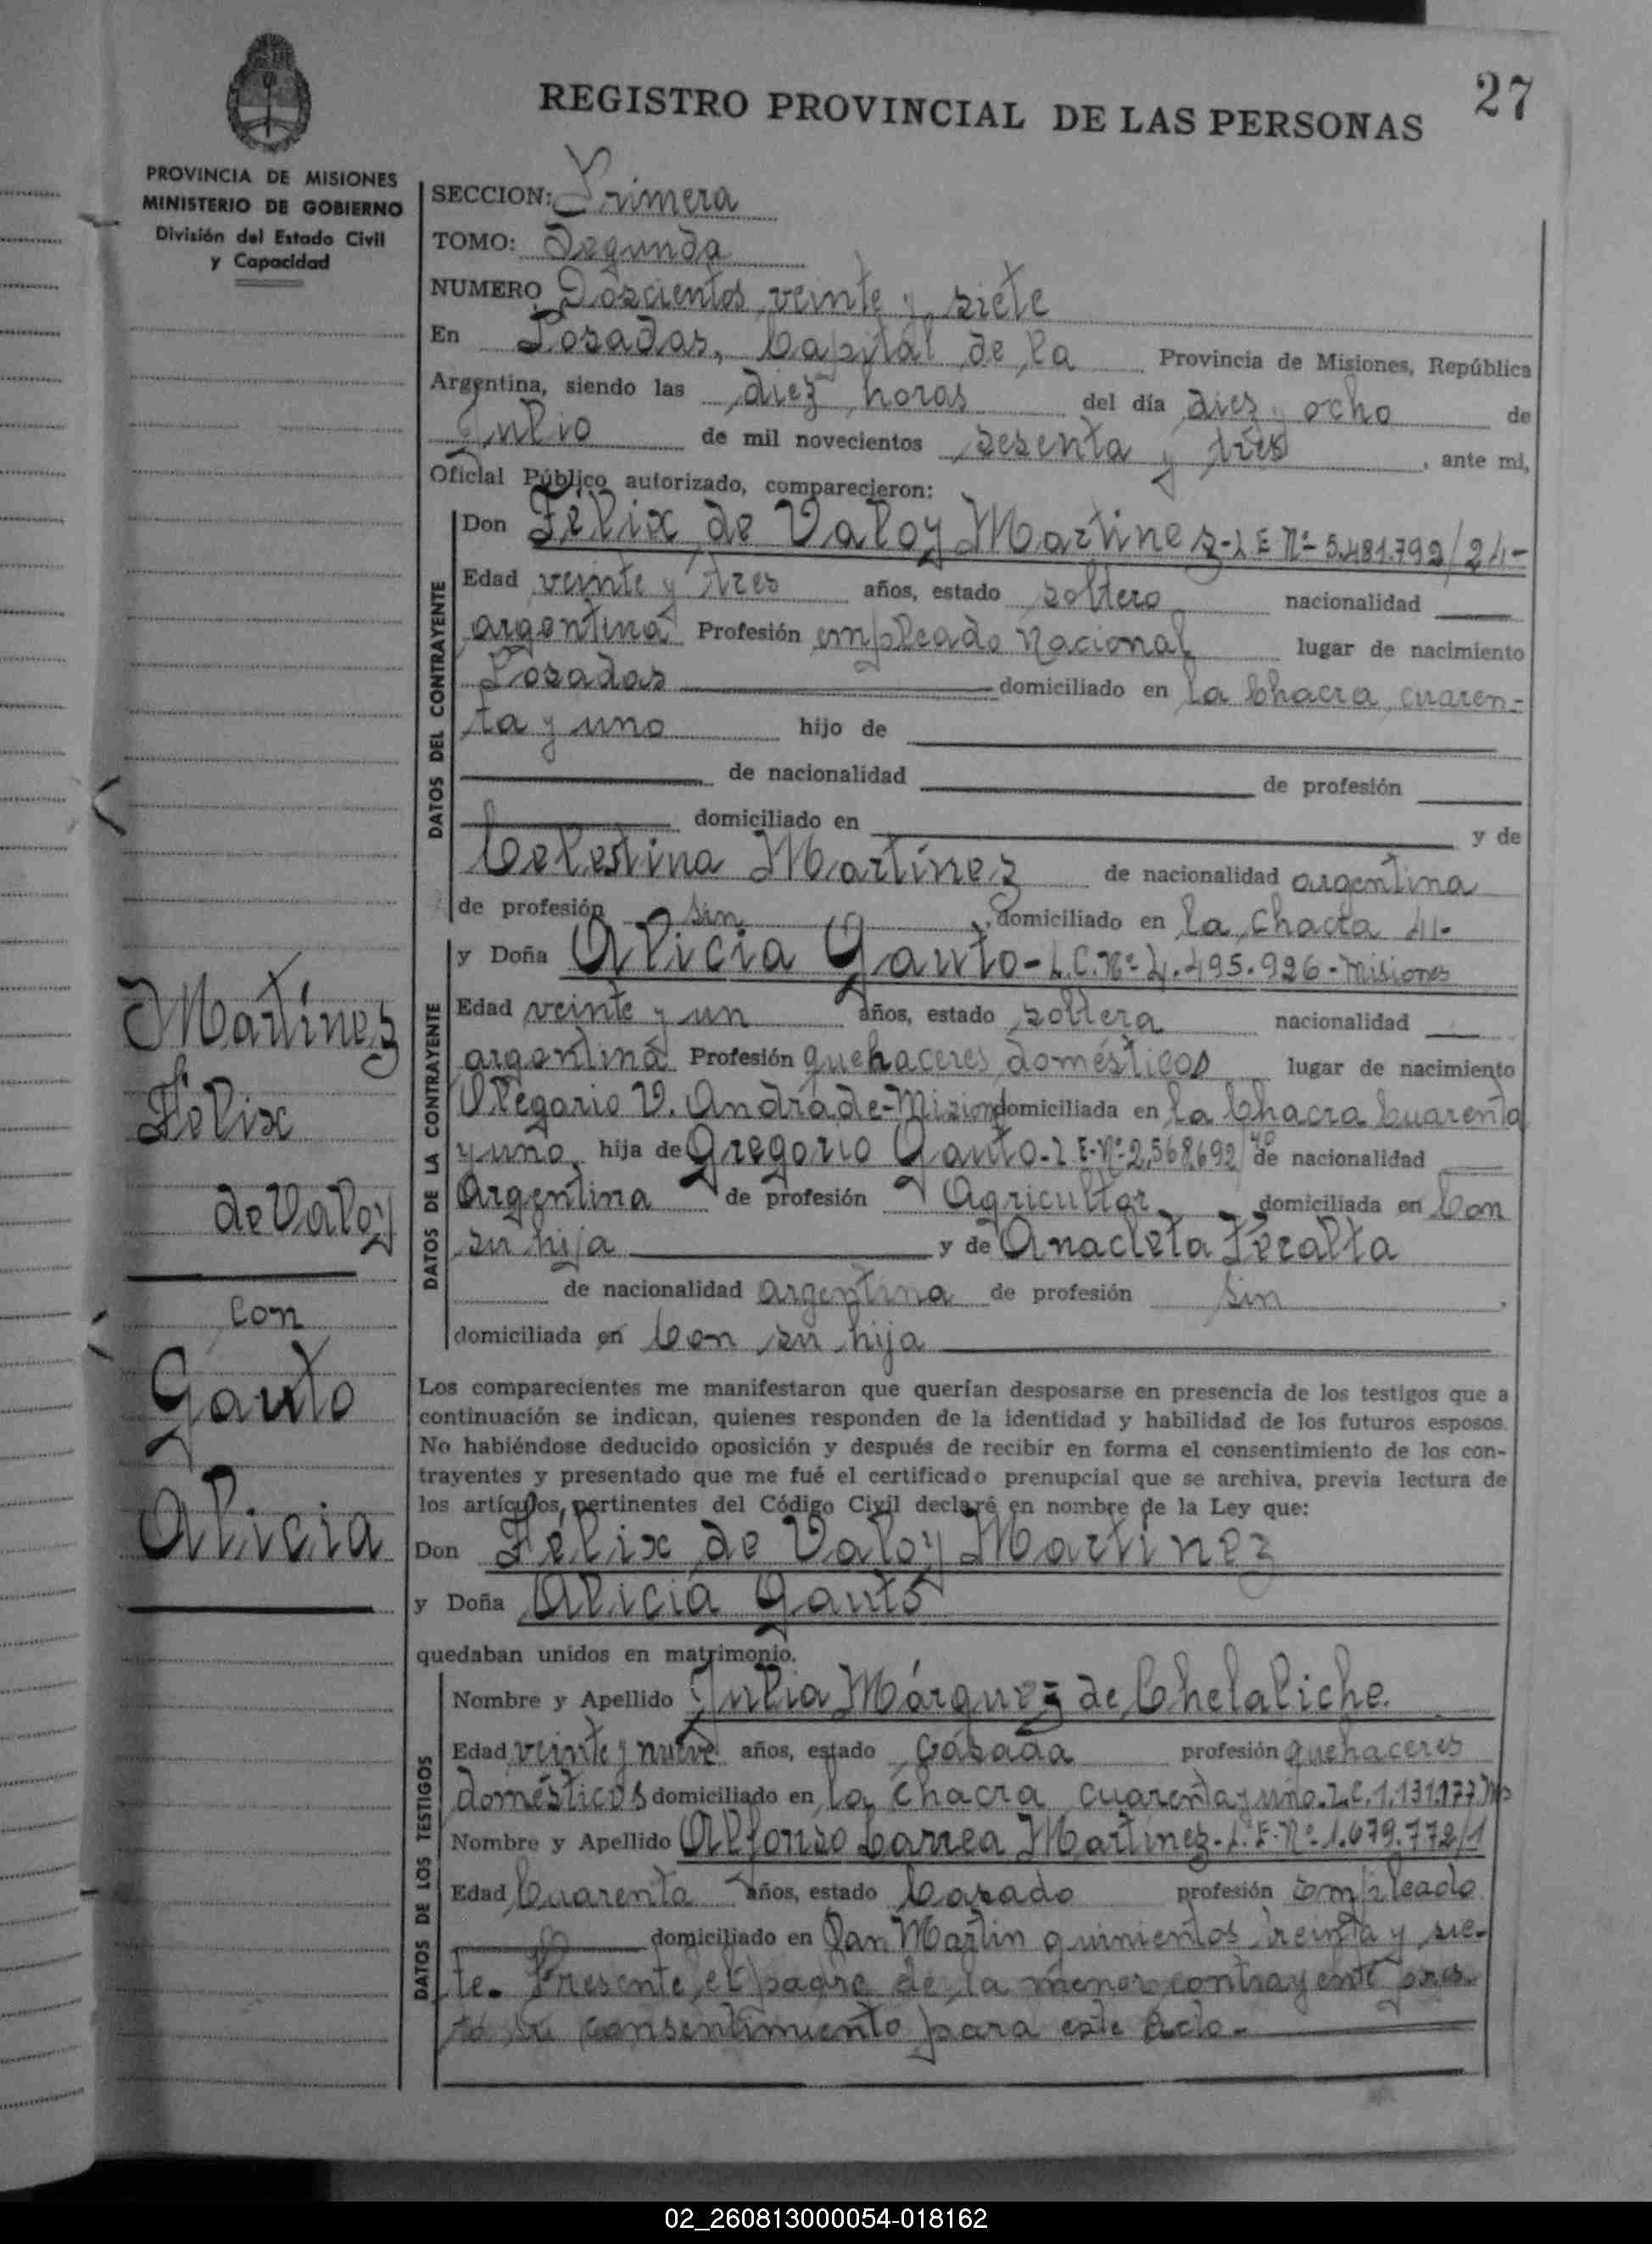 27
REGISTRO PROVINCIAL DE LAS PERSONAS
PROVINCIA DE MISIONES
MINISTERIO DE GOBIERNO
División del Estado Civil
y Capacidad
SECCION: Primera
TOMO: Segunda
NUMERO Doscientos veinte y siete
En Posadas, Capital de la Provincia de Misiones, República
Argentina, siendo las diez horas del día diez y ocho de
Julio de mil novecientos sesenta y tres, ante mi,
Oficial Público autorizado, comparecieron:
DATOS DEL CONTRAYENTE
Don Félix de Valoy Martinez-L E Nº 5.481.792/24-
Edad veinte y tres años, estado soltero nacionalidad
argentina Profesión empleado Nacional lugar de nacimiento
Posadas domiciliado en la Chacra cuaren-
ta y uno hijo de
de nacionalidad de profesión
domiciliado en y de
Celestina Martínez de nacionalidad argentina
de profesión sin, domiciliado en la Chacra 41-
DATOS DE LA CONTRAYENTE
y Doña Alicia Gauto-L.C.Nº 4.495.926-Misiones
Edad veinte y un años, estado soltera nacionalidad
argentina Profesión quehaceres domésticos lugar de nacimiento
Olegario V. Andrade-Mision domiciliada en la Chacra Cuarenta
y uno hija de Gregorio Gauto-L E-Nº 2,568,692/40 de nacionalidad
Argentina de profesión Agricultor domiciliada en Con
su hija y de Anacleta Peralta
de nacionalidad argentina de profesión sin,
domiciliada en Con su hija
Los comparecientes me manifestaron que querían desposarse en presencia de los testigos que a
continuación se indican, quienes responden de la identidad y habilidad de los futuros esposos.
No habiéndose deducido oposición y después de recibir en forma el consentimiento de los con-
trayentes y presentado que me fué el certificado prenupcial que se archiva, previa lectura de
los artículos, pertinentes del Código Civil declaré en nombre de la Ley que:
Don Félix de Valoy Martinez
y Doña Alicia Gauto
quedaban unidos en matrimonio.
DATOS DE LOS TESTIGOS
Nombre y Apellido Julia Márquez de Chelaliche.
Edad veinte y nueve años, estado Casada profesión quehaceres
domésticos domiciliado en la chacra cuarenta y uno. L.C. 1.131.177
Nombre y Apellido Alfonso Larrea Martínez-L.E-Nº 1.679.772/1
Edad Cuarenta años, estado Casado profesión empleado
domiciliado en San Martin quinientos treinta y sie-
te. Presente el padre de la menor contrayente pres
ta su consentimiento para este Acto.-
Martinez
Félix
de Valoy
con
Gauto
Alicia
02_260813000054-018162